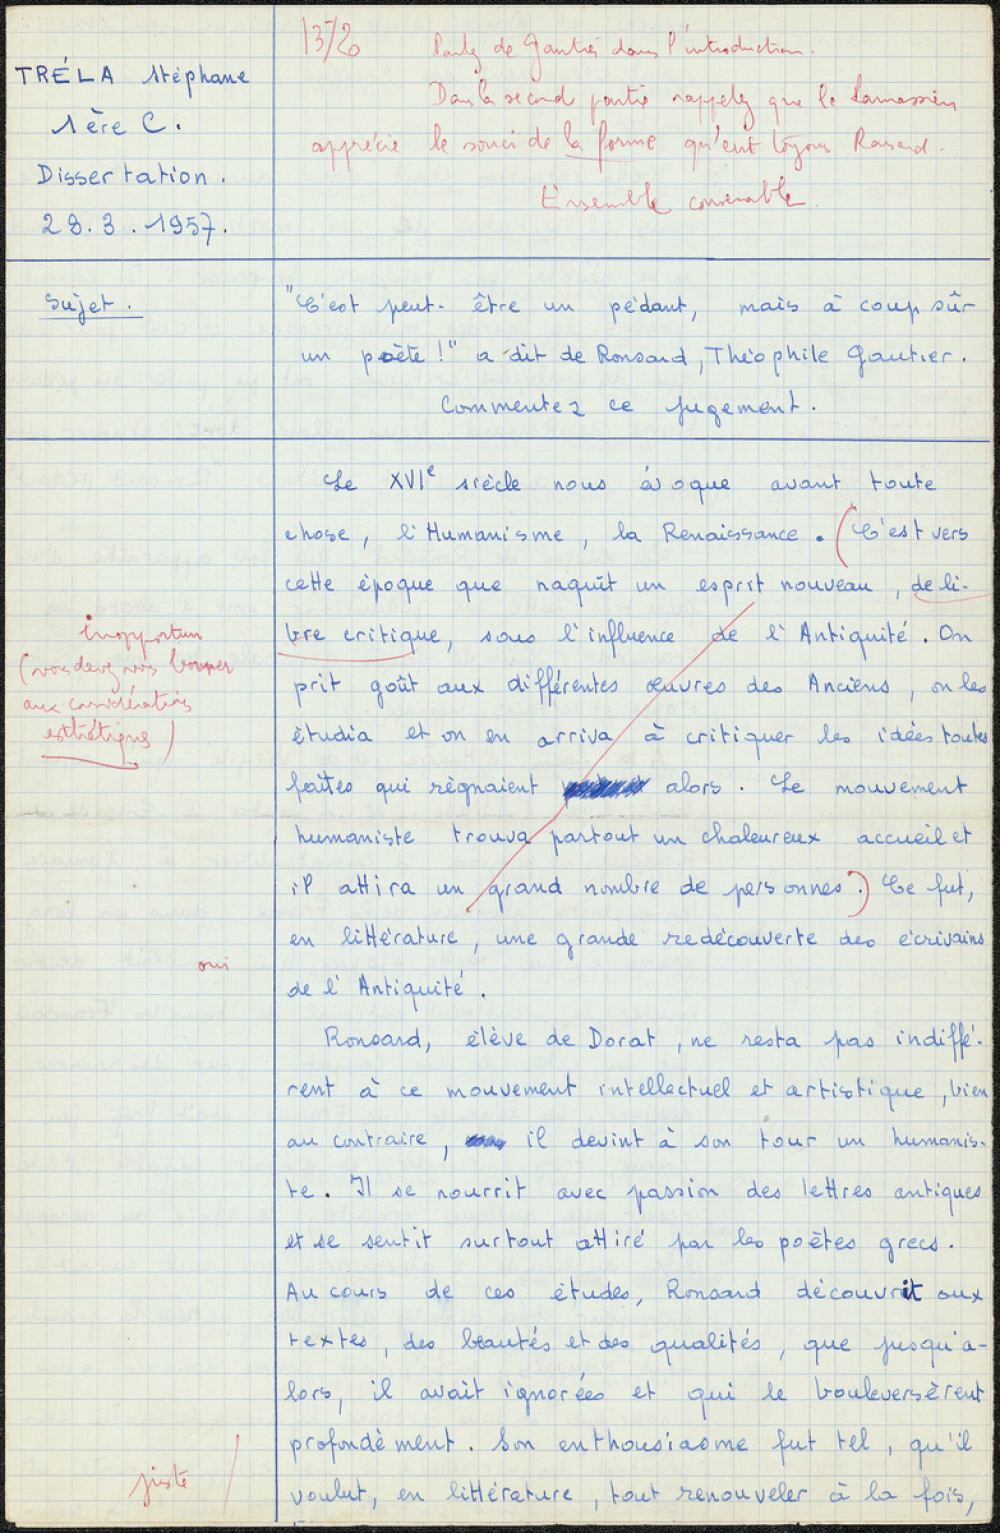 TRÉLA Stéphane
1ère C.
Dissertation.
28.3.1957.
13/20
Parlez de Gautier dans l'introduction.
Dans la second partie rappelez que le Parnassien
apprécie le souci de la forme qu'eut toujours Ronsard.
Ensemble convenable.
Sujet.
"C'est peut-être un pédant, mais à coup sûr
un poète !" a dit de Ronsard, Théophile Gautier.
Commentez ce jugement.
Le XVIe siècle nous évoque avant toute
chose, l'Humanisme, la Renaissance. (C'est vers
cette époque que naquît un esprit nouveau, de li-
bre critique, sous l'influence de l'Antiquité. On
prit goût aux différentes œuvres des Anciens, on les
étudia et on en arriva à critiquer les idées toutes
faites qui règnaient alors. Le mouvement
humaniste trouva partout un chaleureux accueil et
il attira un grand nombre de personnes.) Ce fut,
en littérature, une grande redécouverte des écrivains
de l'Antiquité.
inopportun
(vous devez vous borner
aux considérations
esthétiques)
oui
Ronsard, élève de Dorat, ne resta pas indiffé-
rent à ce mouvement intellectuel et artistique, bien
au contraire, il devint à son tour un humanis-
te. Il se nourrit avec passion des lettres antiques
et se sentit surtout attiré par les poètes grecs.
Au cours de ces études, Ronsard découvrit aux
textes, des beautés et des qualités, que jusqu'a-
lors, il avait ignorées et qui le bouleversèrent
profondèment. Son enthousiasme fut tel, qu'il
voulut, en littérature, tout renouveler à la fois,
juste